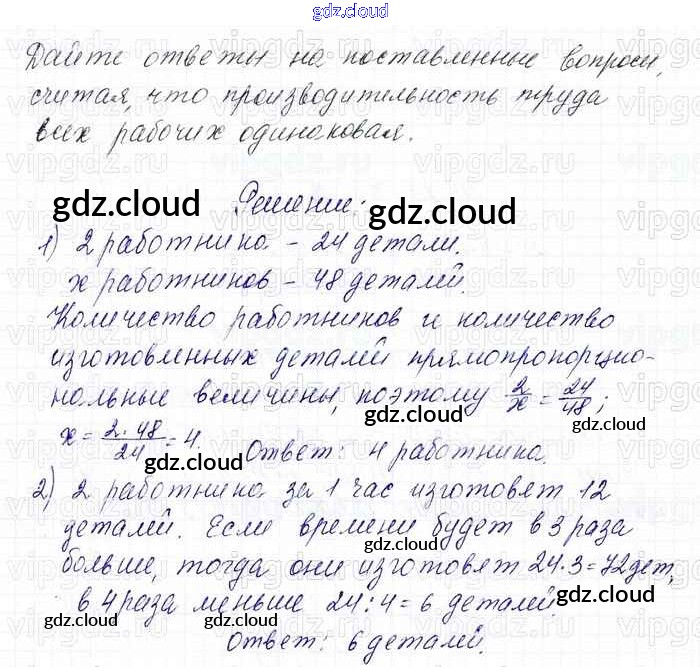 gdz.cloud
Дайте ответы на поставленные вопросы,
считая, что производительность труда
всех рабочих одинаковая.
gdz.cloud Решение: gdz.cloud
1) 2 работника - 24 детали.
x работников - 48 деталей.
Количество работников и количество
изготовленных деталей прямопропорцио-
нальные величины, поэтому 2/x = 24/48;
gdz.cloud gdz.cloud
x = 2·48/24 = 4. Ответ: 4 работника.
2) 2 работника за 1 час изготовят 12
деталей. Если времени будет в 3 раза
gdz.cloud
больше, тогда они изготовят 24·3=72дет,
в 4 раза меньше 24:4=6 деталей.
gdz.cloud gdz.cloud gdz.cloud
Ответ: 6 деталей.